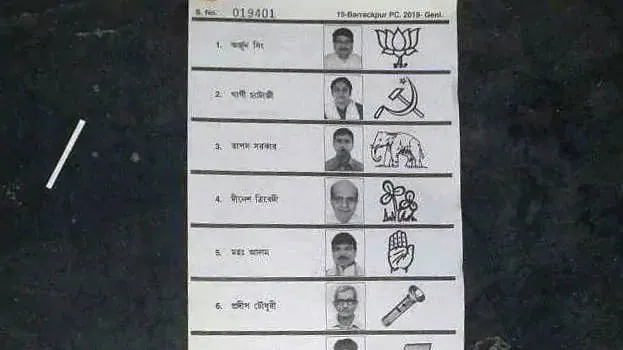 S. No. 019401 15-Barrackpur PC. 2019- Genl.
1. অর্জুন সিং
2. গার্গী চ্যাটার্জী
3. তাপস সরকার
4. দীনেশ ত্রিবেদী
5. মহঃ আলম
6. প্রদীপ চৌধুরী